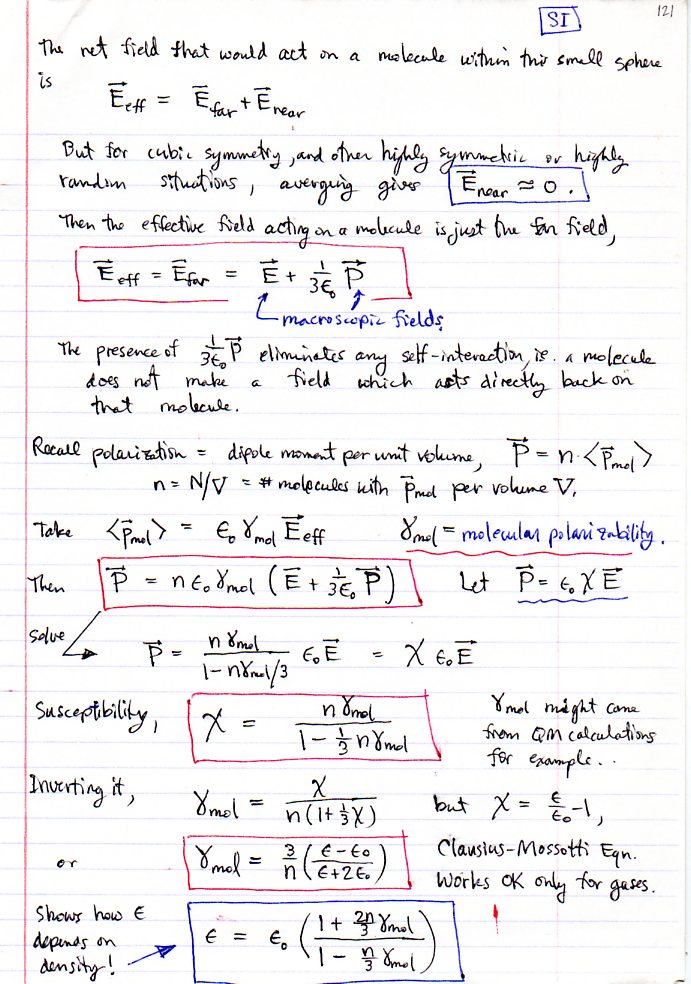 SI 121
The net field that would act on a molecule within this small sphere
is
E⃗eff = E⃗far + E⃗near
But for cubic symmetry, and other highly symmetric or highly
random situations, averging gives E⃗near ≈ 0.
Then the effective field acting on a molecule is just the far field,
E⃗eff = E⃗far = E⃗ + 1/(3ϵ₀) P⃗
macroscopic fields
The presence of 1/(3ϵ₀) P⃗ eliminates any self-interaction, i.e. a molecule
does not make a field which acts directly back on
that molecule.
Recall polarization = dipole moment per unit volume, P⃗ = n·<p⃗mol>
n = N/V = # molecules with p⃗mol per volume V.
Take <p⃗mol> = ϵ₀ γmol E⃗eff γmol = molecular polarizability.
Then P⃗ = n ϵ₀ γmol (E⃗ + 1/(3ϵ₀) P⃗) Let P⃗ = ϵ₀ χ E⃗
solve P⃗ = nγmol/(1-nγmol/3) ϵ₀E⃗ = χ ϵ₀E⃗
Susceptibility, χ = nγmol/(1 - 1/3 nγmol) γmol might come
from QM calculations
for example...
Inverting it, γmol = χ/(n(1+1/3 χ)) but χ = ϵ/ϵ₀ -1,
or γmol = 3/n ((ϵ-ϵ₀)/(ϵ+2ϵ₀)) Clausius-Mossotti Eqn.
Works OK only for gases.
Shows how ϵ
depends on
density! ϵ = ϵ₀ ((1 + 2n/3 γmol)/(1 - n/3 γmol))